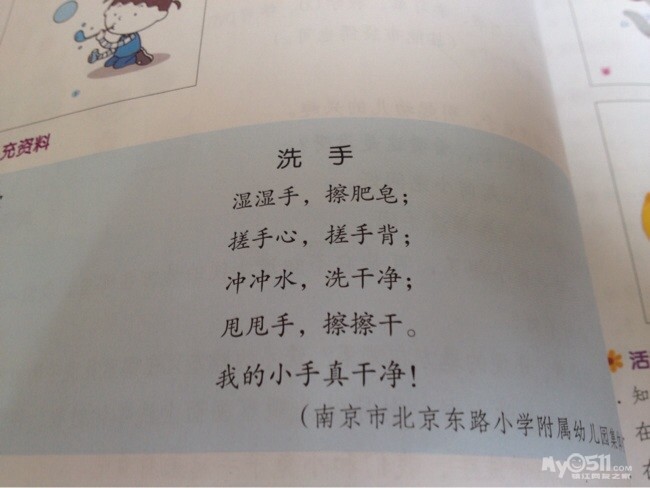 充资料
洗 手
湿湿手，擦肥皂；
搓手心，搓手背；
冲冲水，洗干净；
甩甩手，擦擦干。
我的小手真干净！
（南京市北京东路小学附属幼儿园
活
知
在
在
My0511.COM